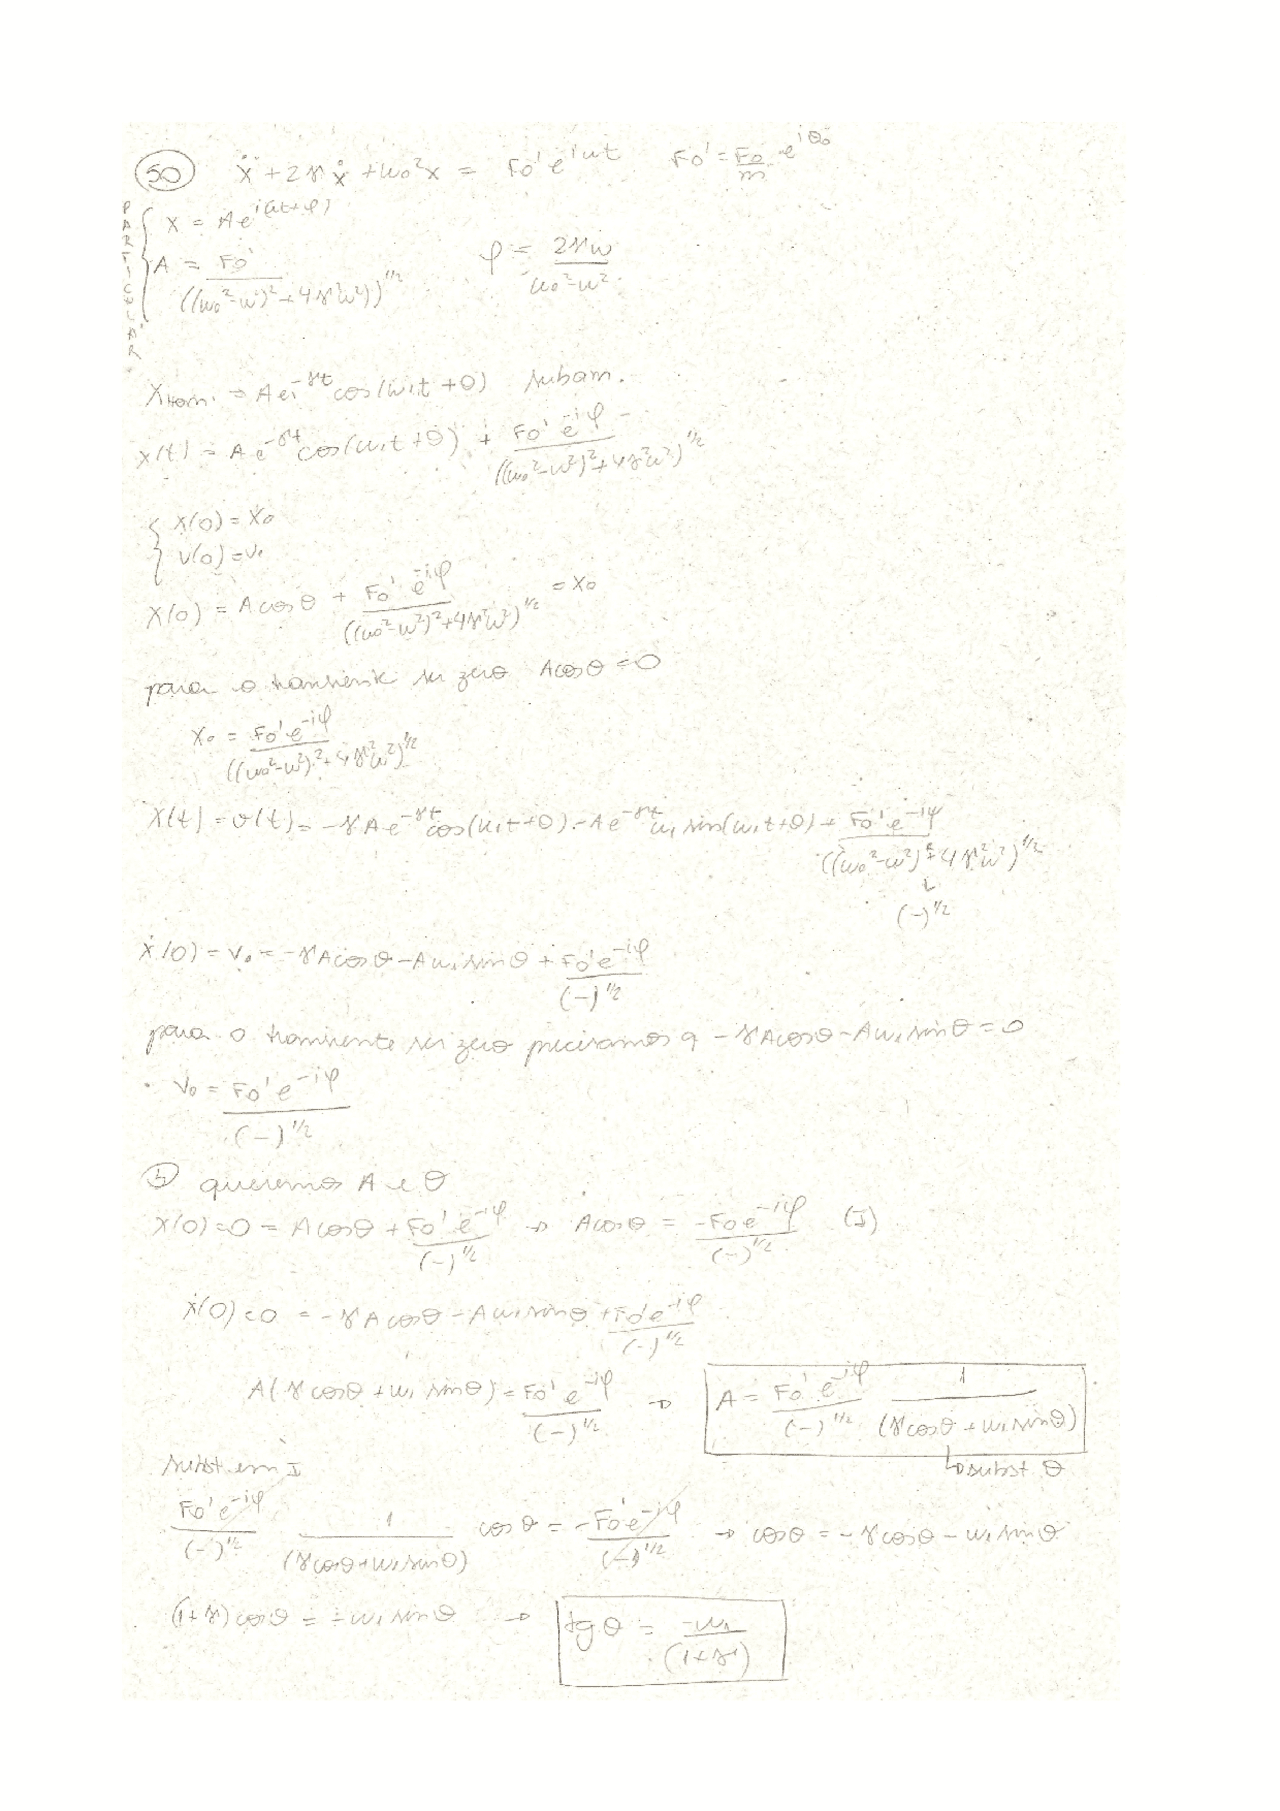 50 ẍ + 2γẋ + ω₀²x = F₀' e^{iωt} F₀' = F₀/m · e^{iθ₀}
PARTICULAR
x = A e^{i(ωt+φ)}
A = F₀' / ((ω₀²-ω²)² + 4γ²ω²))^{1/2} φ = 2γω / ω₀²-ω²
X_{Hom.} → A e^{-γt} cos(ω₁t + θ) subam.
x(t) = A e^{-γt} cos(ω₁t + θ) + F₀' e^{-iφ} / ((ω₀²-ω²)² + 4γ²ω²)^{1/2}
x(0) = x₀
v(0) = v₀
x(0) = A cos θ + F₀' e^{-iφ} / ((ω₀²-ω²)² + 4γ²ω²)^{1/2} = x₀
para o transiente ser zero A cos θ = 0
x₀ = F₀' e^{-iφ} / ((ω₀²-ω²)² + 4γ²ω²)^{1/2}
ẋ(t) = v(t) = -γA e^{-γt} cos(ω₁t+θ) - A e^{-γt} ω₁ sin(ω₁t+θ) + F₀' e^{-iφ} / ((ω₀²-ω²)² + 4γ²ω²)^{1/2}
↓
(-)^{1/2}
ẋ(0) = v₀ = -γA cos θ - A ω₁ sin θ + F₀' e^{-iφ} / (-)^{1/2}
para o transiente ser zero precisamos q -γA cos θ - A ω₁ sin θ = 0
v₀ = F₀' e^{-iφ} / (-)^{1/2}
b queremos A e θ
x(0) = 0 = A cos θ + F₀' e^{-iφ} / (-)^{1/2} → A cos θ = -F₀ e^{-iφ} / (-)^{1/2} (I)
ẋ(0) = 0 = -γA cos θ - A ω₁ sin θ + F₀' e^{-iφ} / (-)^{1/2}
A(γ cos θ + ω₁ sin θ) = F₀' e^{-iφ} / (-)^{1/2} → A = F₀' e^{-iφ} / (-)^{1/2} 1 / (γ cos θ + ω₁ sin θ)
↳ subst θ
subst em I
F₀' e^{-iφ} / (-)^{1/2} 1 / (γ cos θ + ω₁ sin θ) cos θ = -F₀' e^{-iφ} / (-)^{1/2} → cos θ = -γ cos θ - ω₁ sin θ
(1+γ) cos θ = -ω₁ sin θ → tg θ = -ω₁ / (1+γ)